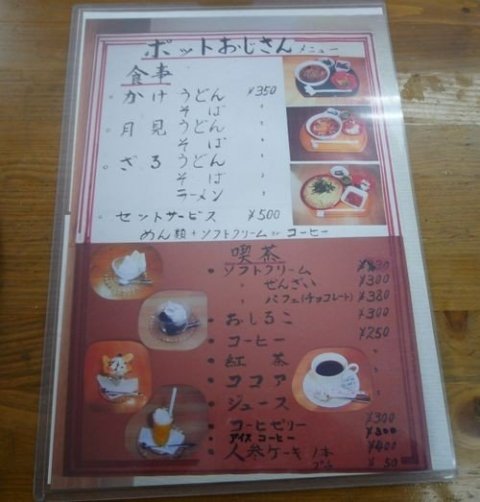 ポットおじさん メニュー
食事
かけ うどん ¥350
そば 〃
月見 うどん 〃
そば 〃
ざる うどん 〃
そば 〃
ラーメン 〃
セットサービス ¥500
めん類+ソフトクリーム or コーヒー
喫茶
ソフトクリーム
〃 ぜんざい ¥300
〃 パフェ(チョコレート) ¥380
おしるこ ¥300
コーヒー ¥250
紅茶 〃
ココア 〃
ジュース 〃
コーヒゼリー ¥300
アイスコーヒー ¥300
人参ケーキ 1本 ¥400
¥50